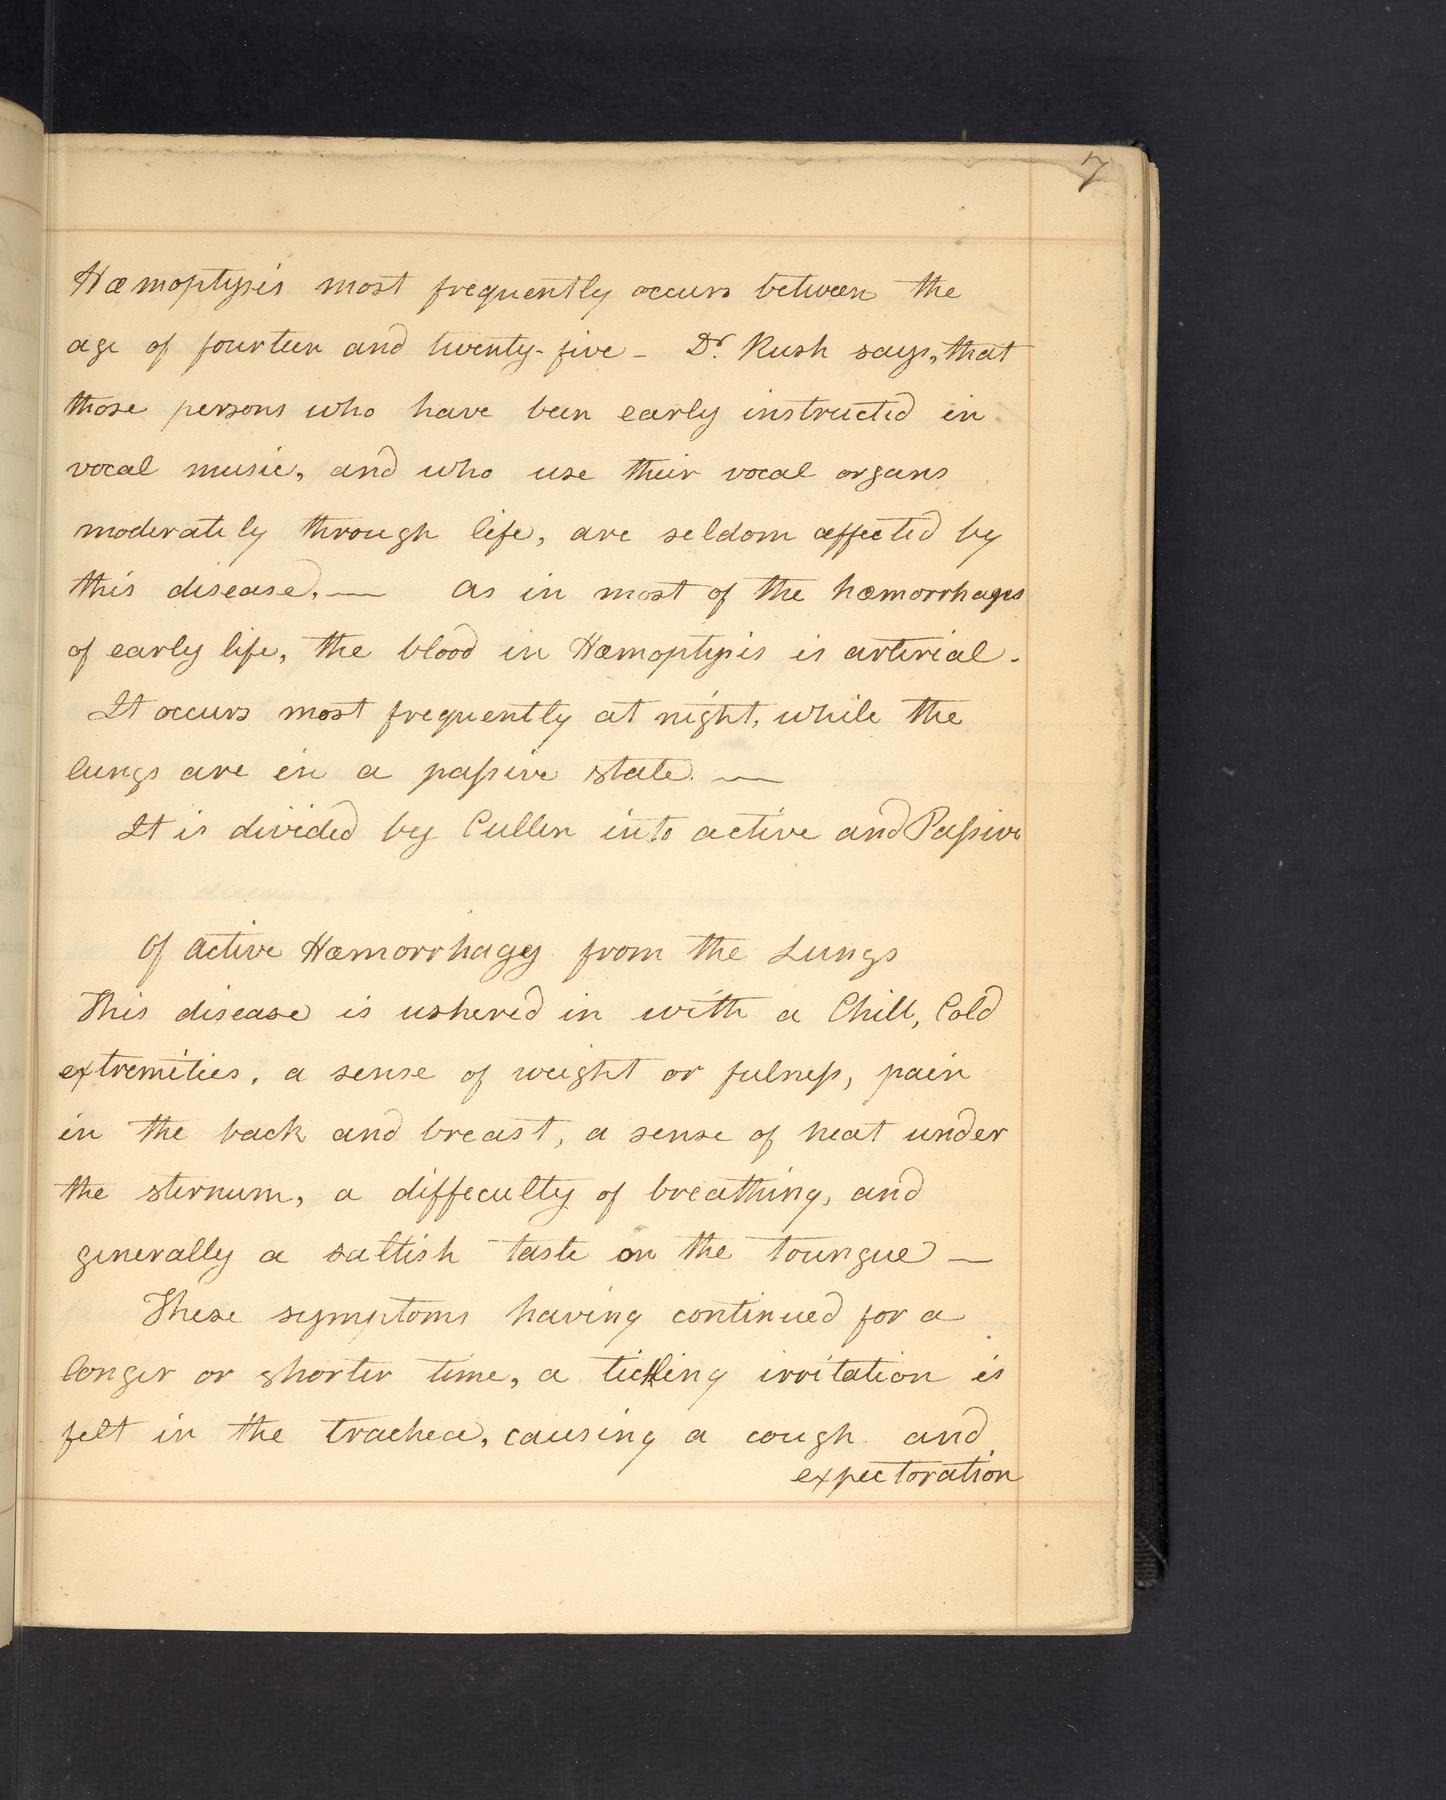 7
Hæmoptysis most frequently occurs between the
age of fourteen and twenty-five - Dr. Rush says, that
those persons who have been early instructed in
vocal music, and who use their vocal organs
moderately through life, are seldom affected by
this disease. — As in most of the hæmorrhages
of early life, the blood in Hæmoptysis is arterial.
It occurs most frequently at night, while the
lungs are in a paſsive state. —
It is divided by Cullen into active and Paſsive
Of active Hæmorrhagy from the Lungs
This disease is ushered in with a Chill, Cold
extremities, a sense of weight or fulneſs, pain
in the back and breast, a sense of heat under
the sternum, a diffeculty of breathing, and
generally a saltish taste on the toungue —
These symptoms having continued for a
longer or shorter time, a tickling irritation is
felt in the trachea, causing a cough and
expectoration